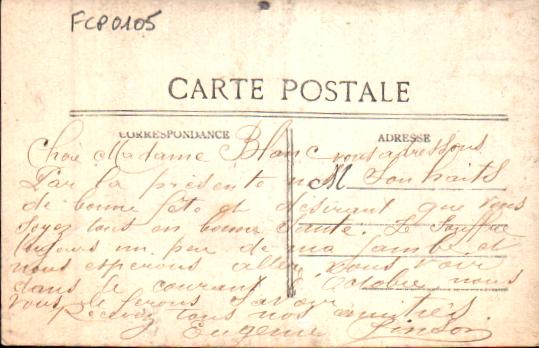 FCP0105
CARTE POSTALE
CORRESPONDANCE
ADRESSE
Chère Madame Blanc
Par la présente nous vous adressons
M
Souhaits
de bonne fête et désirant que vous
soyez tous en bonne santé. Je souffre
toujours un peu de ma jambe et
nous espérons aller vous voir
dans le courant d'octobre nous
vous le ferons savoir
Recevez tous nos amitiés.
Eugenie